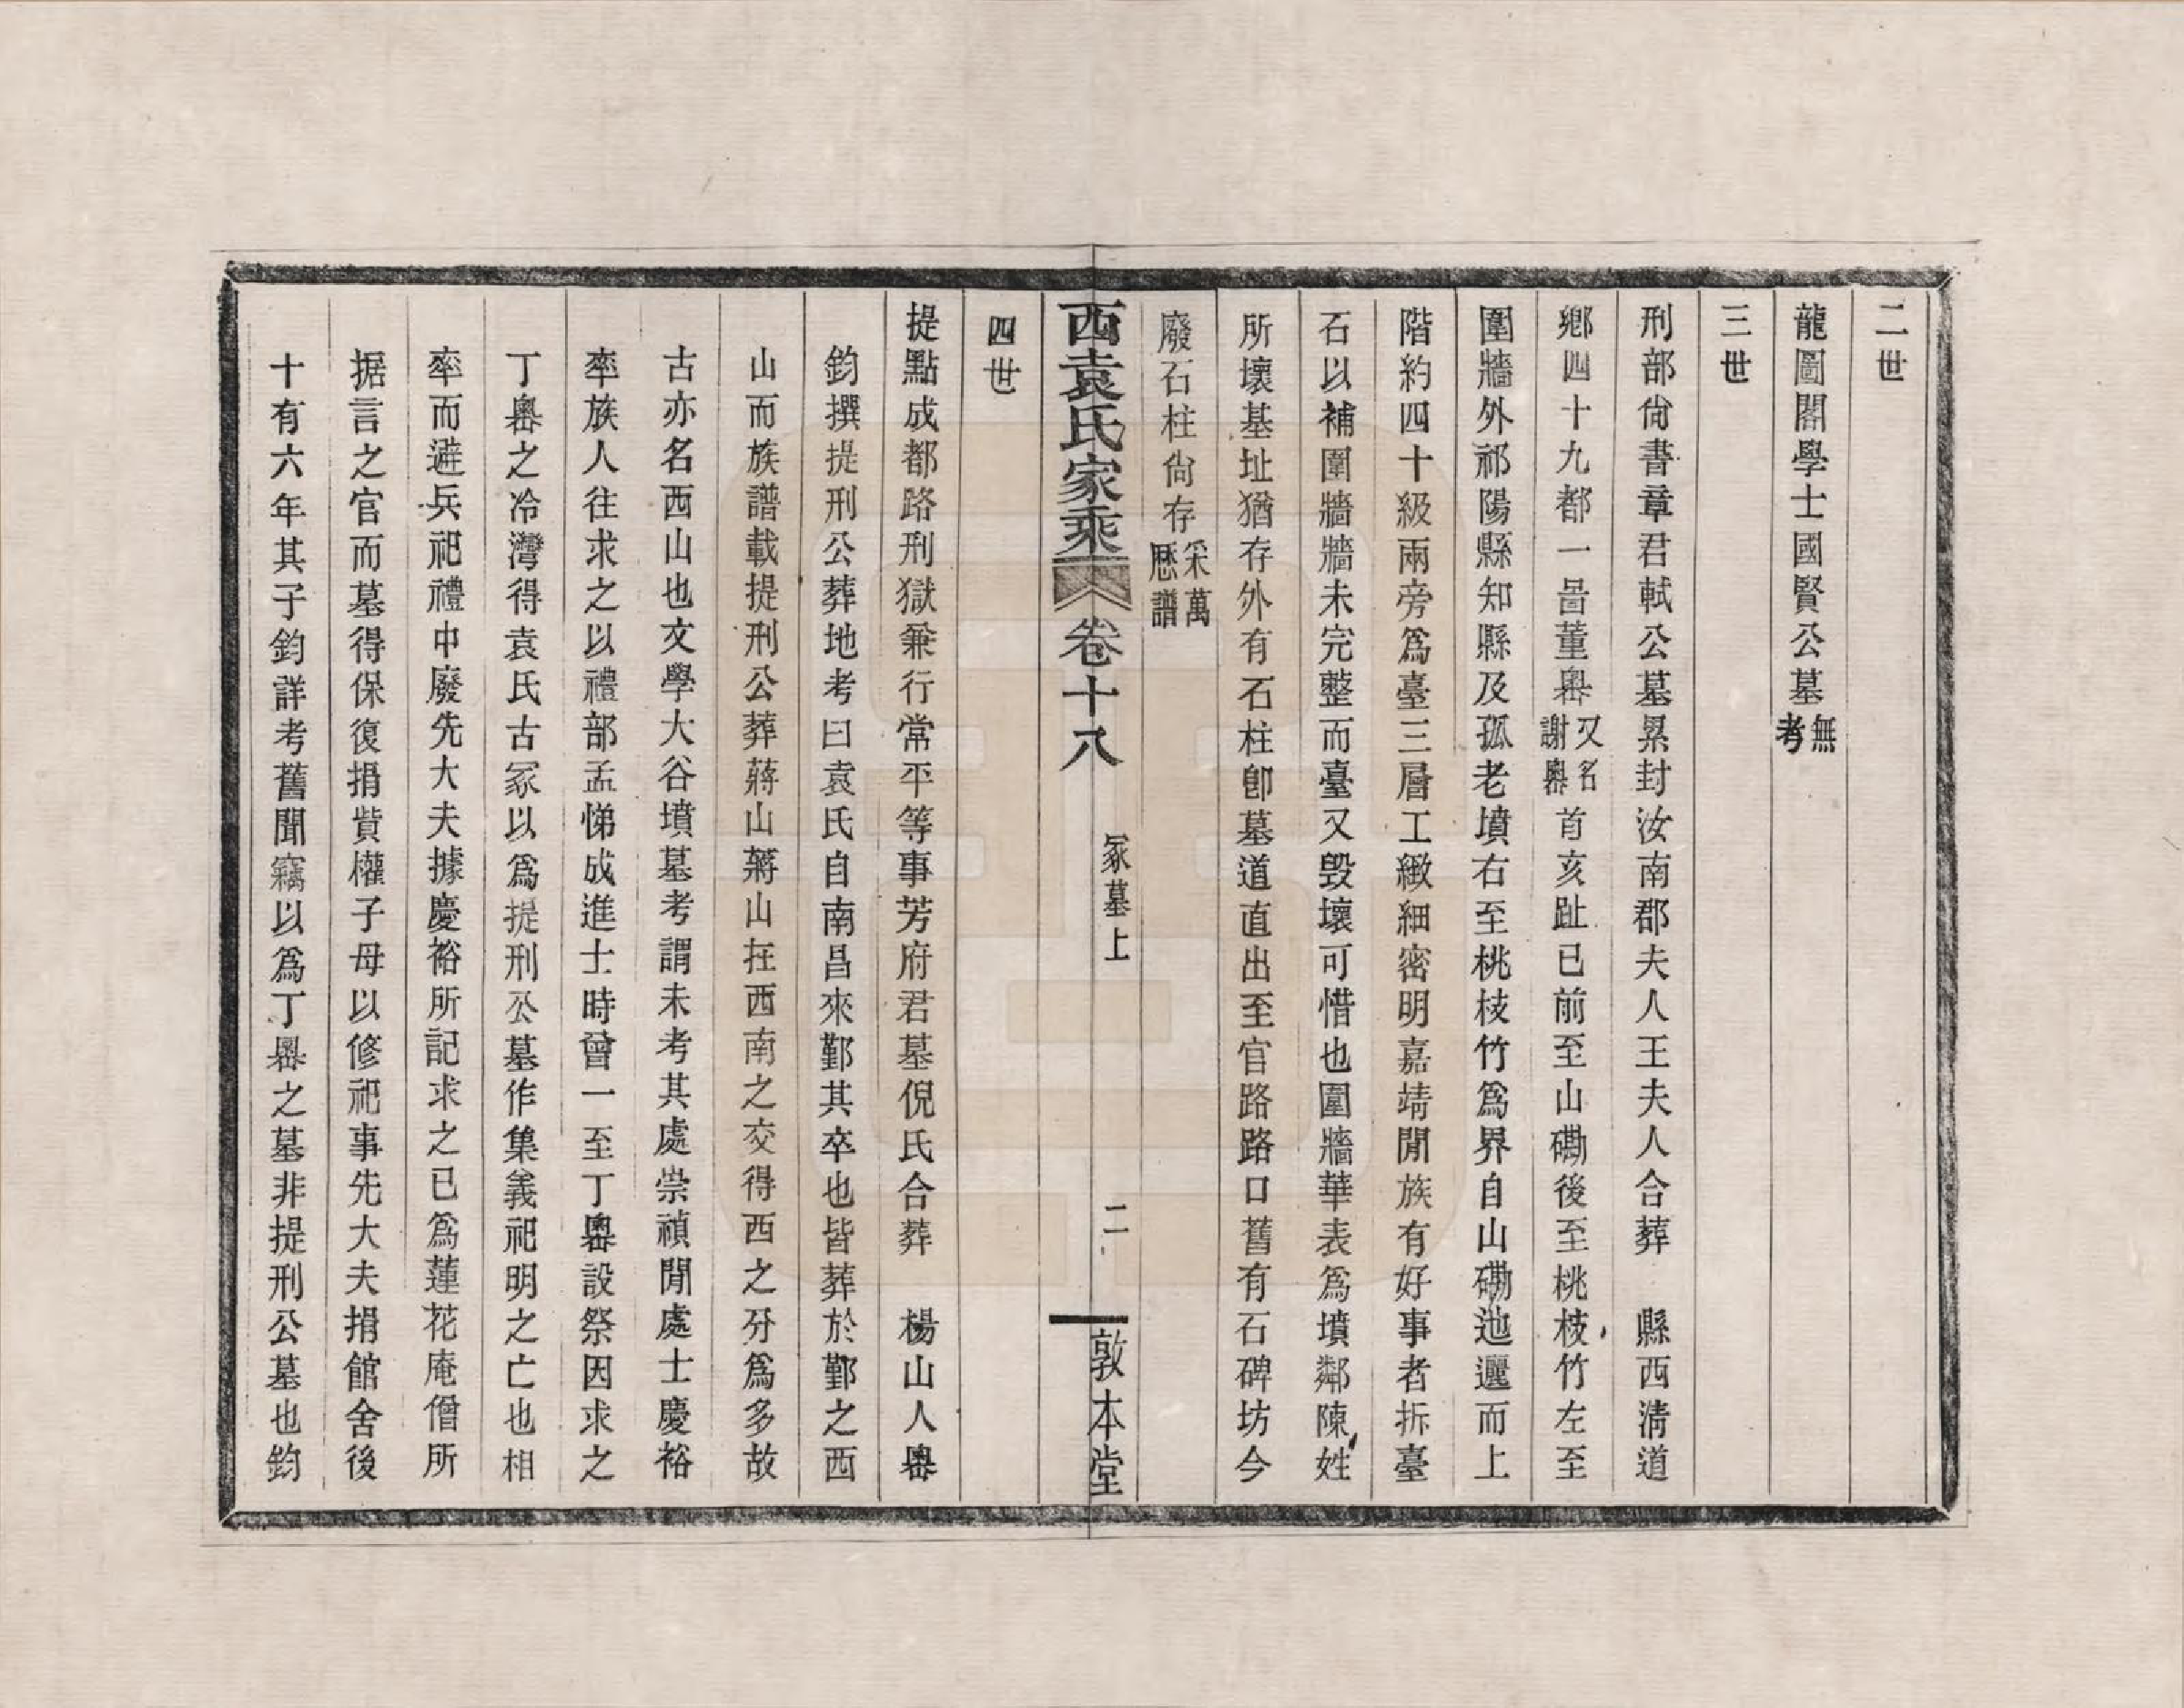 二世
龍圖閣學士國賢公墓無考
三世
刑部尙書章君軾公墓累封汝南郡夫人王夫人合葬　縣西淸道
鄕四十九都一啚董嶴又名謝嶴首亥趾巳前至山磡後至桃枝竹左至
圍牆外祁陽縣知縣及孤老墳右至桃枝竹爲界自山磡迆邐而上
階約四十級兩旁爲臺三層工緻細密明嘉靖閒族有好事者拆臺
石以補圍牆牆未完整而臺又毀壞可惜也圍牆華表爲墳鄰陳姓
所壞基址猶存外有石柱卽墓道直出至官路路口舊有石碑坊今
廢石柱尙存采萬厯譜
西袁氏家乘　卷十八　冢墓上　二　敦本堂
四世
提點成都路刑獄兼行常平等事芳府君墓倪氏合葬　楊山人嶴
鈞撰提刑公葬地考曰袁氏自南昌來鄞其卒也皆葬於鄞之西
山而族譜載提刑公葬蔣山蔣山在西南之交得西之分爲多故
古亦名西山也文學大谷墳墓考謂未考其處崇禎閒處士慶裕
率族人往求之以禮部孟悌成進士時曾一至丁嶴設祭因求之
丁嶴之冷灣得袁氏古冢以爲提刑公墓作集義祀明之亡也相
率而避兵祀禮中廢先大夫據慶裕所記求之已爲蓮花庵僧所
据言之官而墓得保復捐貲權子母以修祀事先大夫捐館舍後
十有六年其子鈞詳考舊聞竊以爲丁嶴之墓非提刑公墓也鈞